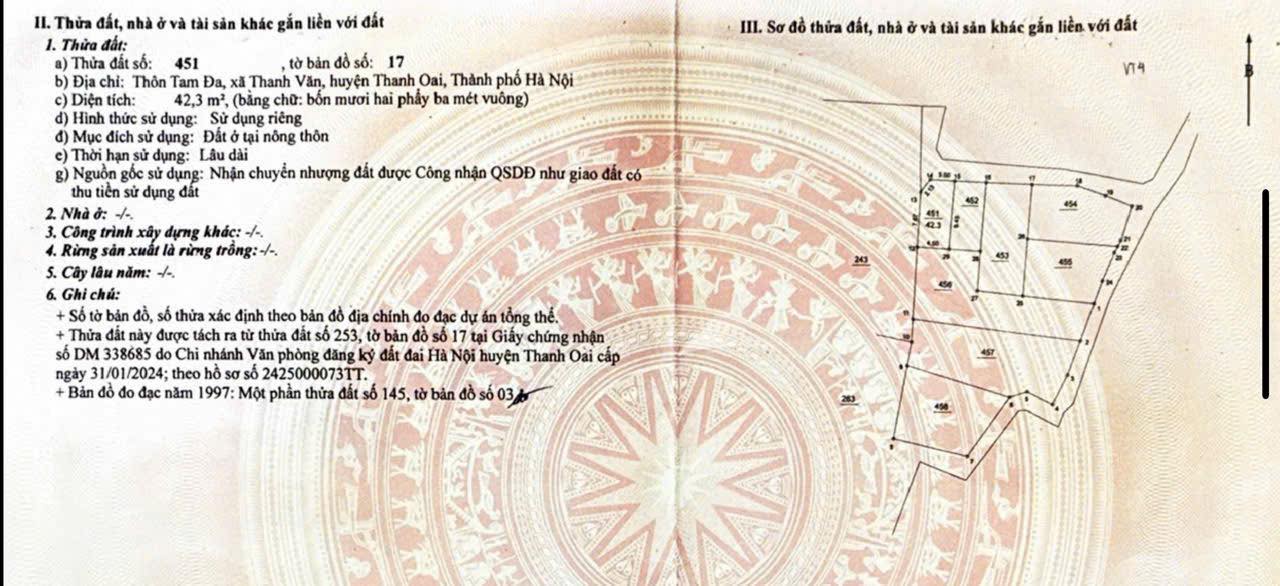 II. Thửa đất, nhà ở và tài sản khác gắn liền với đất
1. Thửa đất:
a) Thửa đất số: 451 , tờ bản đồ số: 17
b) Địa chỉ: Thôn Tam Đa, xã Thanh Văn, huyện Thanh Oai, Thành phố Hà Nội
c) Diện tích: 42,3 m², (bằng chữ: bốn mươi hai phẩy ba mét vuông)
d) Hình thức sử dụng: Sử dụng riêng
đ) Mục đích sử dụng: Đất ở tại nông thôn
e) Thời hạn sử dụng: Lâu dài
g) Nguồn gốc sử dụng: Nhận chuyển nhượng đất được Công nhận QSDĐ như giao đất có
thu tiền sử dụng đất
2. Nhà ở: -/-.
3. Công trình xây dựng khác: -/-.
4. Rừng sản xuất là rừng trồng: -/-.
5. Cây lâu năm: -/-.
6. Ghi chú:
+ Số tờ bản đồ, số thửa xác định theo bản đồ địa chính đo đạc dự án tổng thể.
+ Thửa đất này được tách ra từ thửa đất số 253, tờ bản đồ số 17 tại Giấy chứng nhận
số DM 338685 do Chi nhánh Văn phòng đăng ký đất đai Hà Nội huyện Thanh Oai cấp
ngày 31/01/2024; theo hồ sơ số 2425000073TT.
+ Bản đồ đo đạc năm 1997: Một phần thửa đất số 145, tờ bản đồ số 03
III. Sơ đồ thửa đất, nhà ở và tài sản khác gắn liền với đất
VT4
B
14 5.00 15 16 17 18 19
13 452 454 20
451
42.3
12 4.50 29 28 453 26 455 21
22
23
243 456 24
27 25 1
11
10 457 2
9 3
263 458 6 5 4
8
7